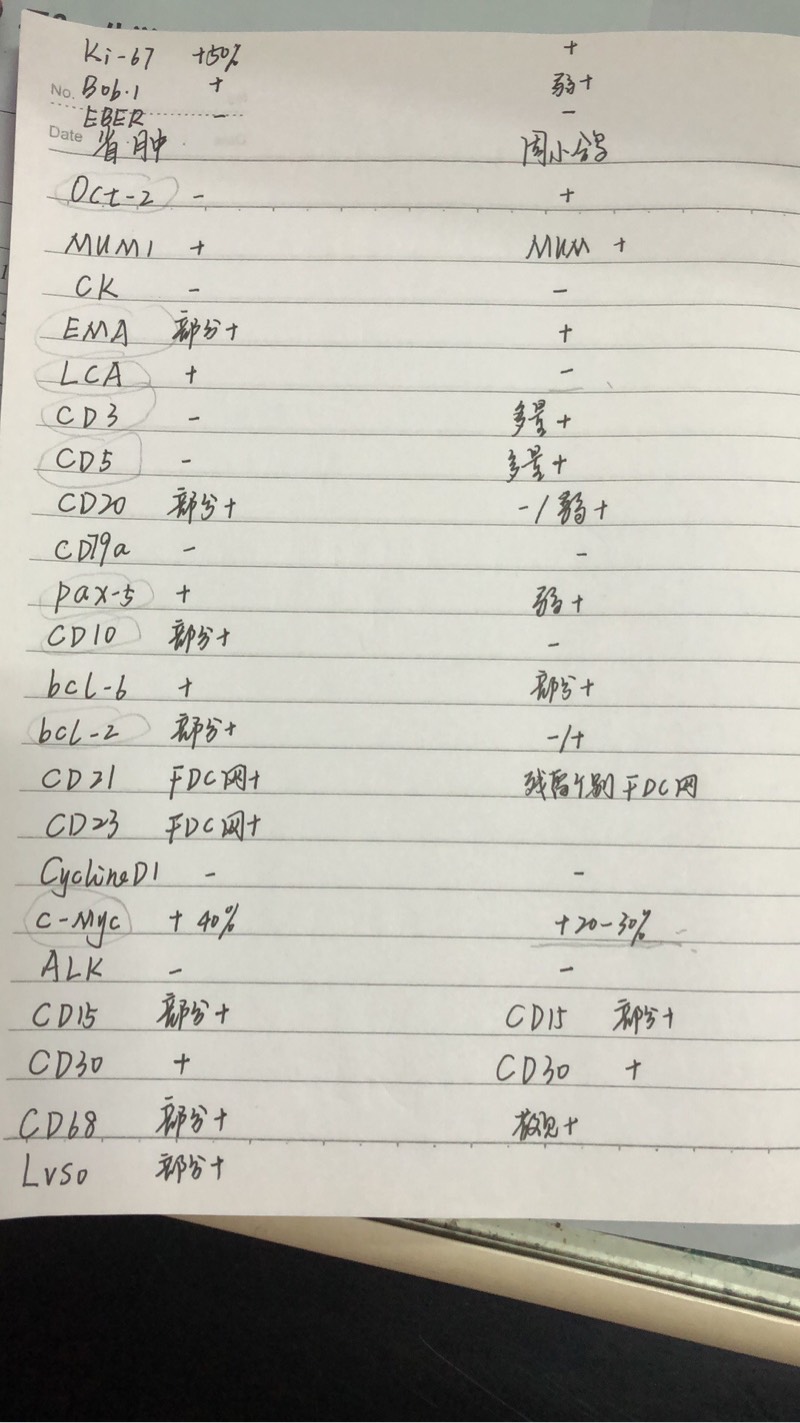 Ki-67 +50% +
No. Bob.1 + 弱+
EBER - -
Date 省肿 周小鸽
Oct-2 - +
MUM1 + MUM +
CK - -
EMA 部分+ +
LCA + -
CD3 - 多量+
CD5 - 多量+
CD20 部分+ -/弱+
CD79a - -
pax-5 + 弱+
CD10 部分+ -
bcl-6 + 部分+
bcl-2 部分+ -/+
CD21 FDC网+ 残留个别FDC网
CD23 FDC网+
CyclineD1 - -
c-Myc +40% +20-30%
ALK - -
CD15 部分+ CD15 部分+
CD30 + CD30 +
CD68 部分+ 散见+
Lvso 部分+